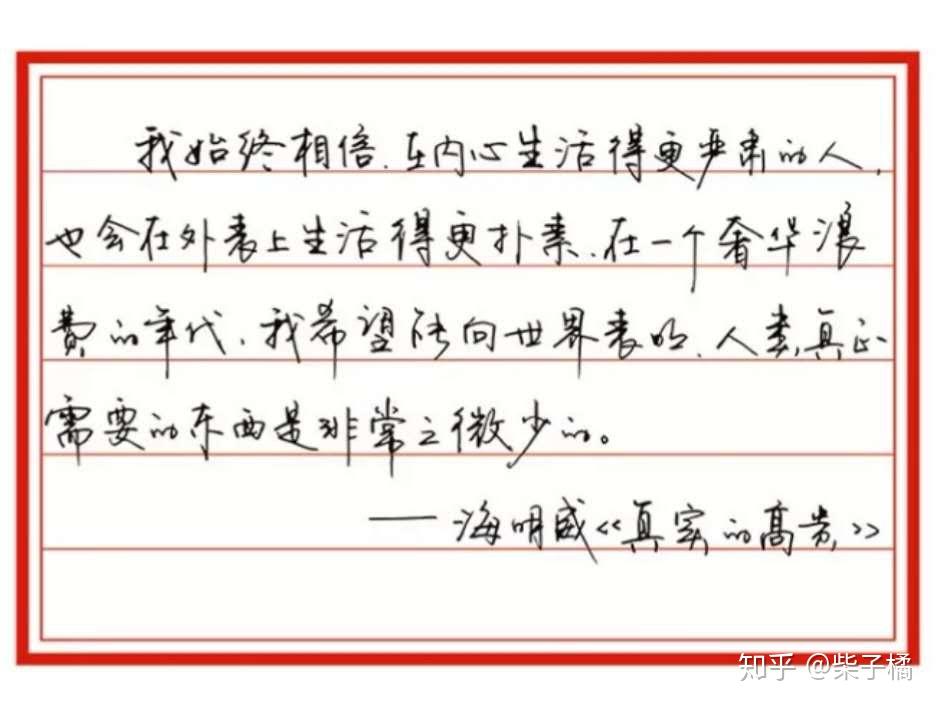 我始终相信,在内心生活得更严肃的人,
也会在外表上生活得更朴素,在一个奢华浪
费的年代,我希望能向世界表明,人类真正
需要的东西是非常之微少的。
——海明威《真实的高贵》
知乎 @柴子橘